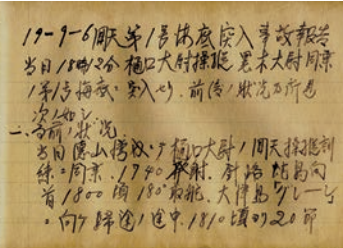 19-9-6 回天第1号海底突入事故報告
当日18時12分樋口大尉操縦黒木大尉同乗
ノ第1号海底ニ突入セリ、前後ノ状況及所見
次ノ如シ
一、当前ノ状況
当日徳山模校ニテ樋口大尉ノ回天操縦訓
練ニ同乗、1740発射、針路蛇島向
首1800頃180°取舵、大津島クレーン
ニ向ケ帰途ノ途中、1810頃ヨリ20節